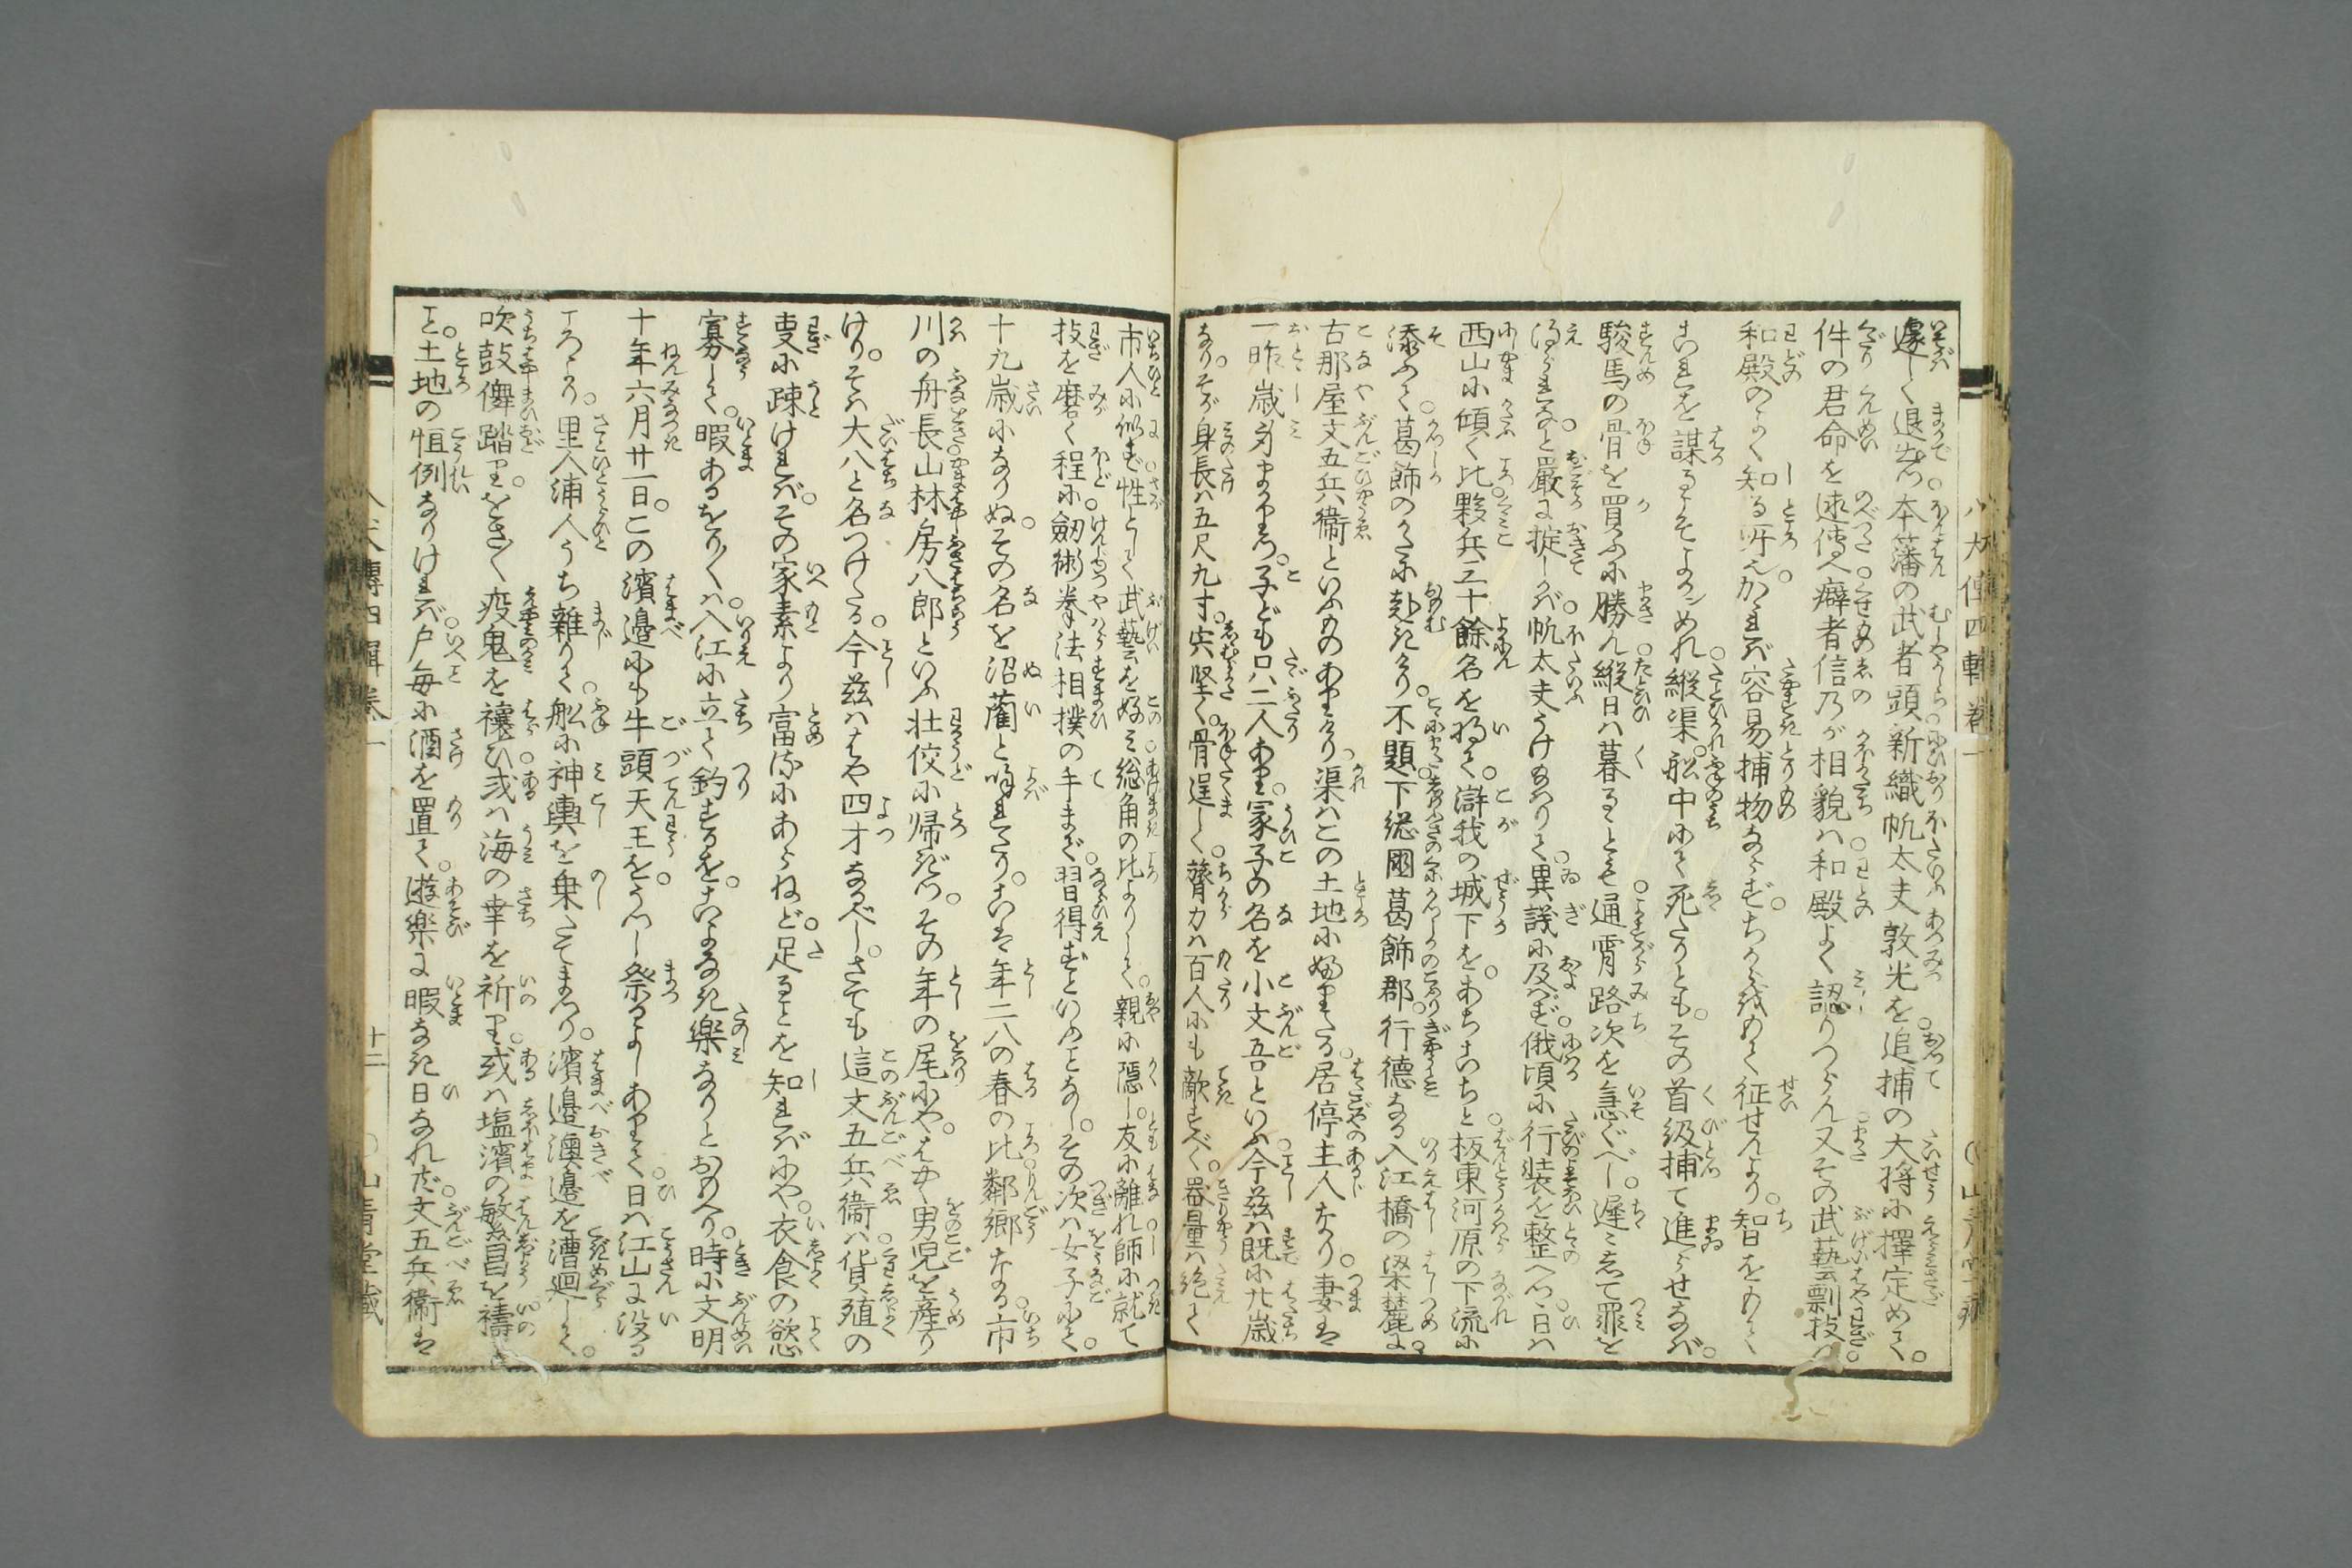 遽しく退出つ。本藩の武者頭新織帆太夫敦光を。追捕の大将に擇定めて。
件の君命を逑傳へ癖者信乃が相貌は和殿よく認りつらん又その武藝剽技は。
和殿のよく知る所也。かゝれば容易捕物ならず。ちからをもて征せんより。智をもて
これを謀るこそよからめれ縦渠。舩中にて死たりとも。その首級捕て進らせなば。
駿馬の骨を買ふに勝ん縦日は暮るとも。通宵路次を急ぐべし。遲々して罪を
得られなと嚴に掟しかば。帆太夫うけ給はりて。異議に及ばず。俄頃に行装を整へつ。日は
西山に傾く比夥兵三十餘名を将て。滸我の城下を。あちこちと。板東河原の下流に
添ふて。葛飾のかたに赴きけり。不題。下総國葛飾郡。行德なる入江橋の梁麓に。
古那屋文五兵衞といふものありけり。渠はこの土地に婦りたる。居停主人なり。妻は
一昨歳身まかりつ。子ども只二人あり。家子の名を小文吾といふ。今茲は既に廿歳
なり。そが身長は五尺九寸。宍堅く。骨逞しく。膂力は百人にも敵すべく。器量は絶て
市人に似ず。性として武藝を好み。総角の比よりして。親に隱し。友に離れ師に就て
技を磨く程に。劔術拳法相撲の手まで。習得ずといふことなし。その次は女子にて。
十九歳になりぬ。その名を沼藺と喚れたり。こは年二八の春の比鄰郷なる。市
川の舟長山林房八郎といふ壮佼に帰ぎつ。その年の尾にや。はやく男児を産り
けり。そは大八と名つけたる。今茲ははや四才なるべし。さても這文五兵衞は。貨殖の
叓に疎ければ。その家素より富るにあらねど。足ることを知ればにや。衣食の慾
寡して。暇あるをりくは。入江に立て釣するを。こよなき樂なりとおもへり。時に文明
十年六月廿一日。この濱邉にも牛頭天王を。うつし祭るよしありて。日は江山に没る
ころより。里人浦人うち雜りて。舩に神輿を乗たてまつり。濱邉澳邉を漕廻して。
吹鼓儛踏り。をさく疫鬼を禳ひ或は海の幸を祈り。或は塩濱の繁昌を禱る
こと。土地の恒例なりければ。戸毎に酒を置て。遊樂に暇なき日なれど。文五兵衞は
八犬傳四輯卷一
八犬傳四輯卷一
十二
山青堂藏